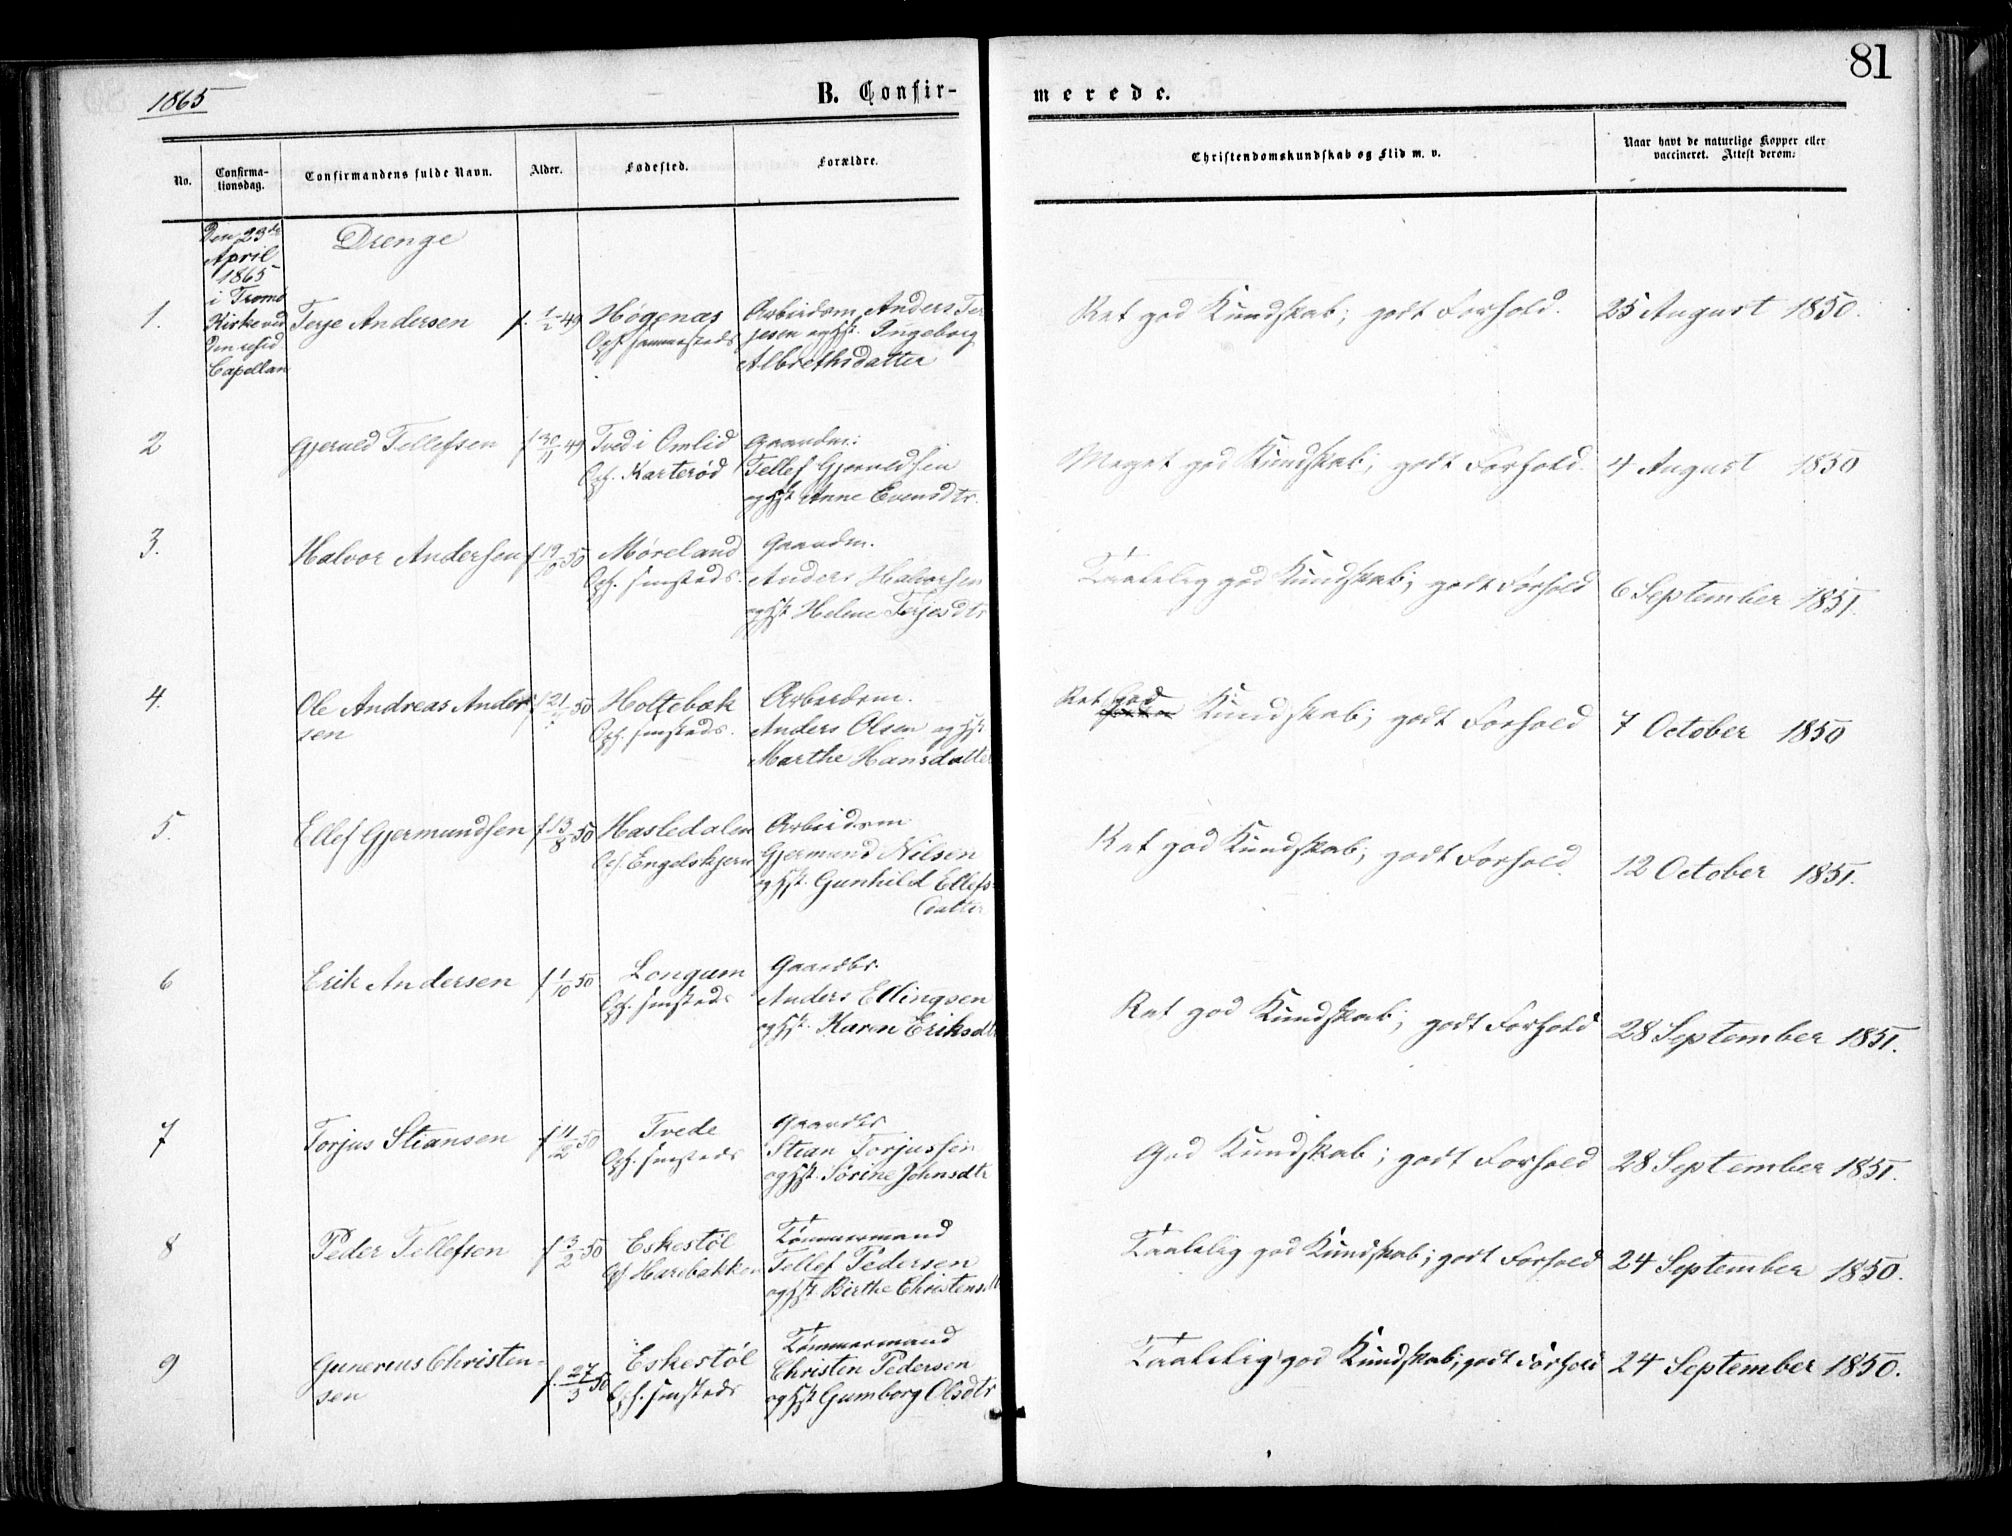 81
1865
B. Confir-
merede.
No.
Confirma-
tionsdag.
Confirmandens fulde Navn.
Alder.
Fødested.
Forældre.
Christendomskundskab og Flid m. v.
Naar havt de naturlige Kopper eller
vaccineret. Attest derom:
Den 23de
April
1865
i Tromø
Kirke ved
den resid
Capellan
Drenge
1.
Terje Andersen
f. 1/2-49
Høgenæs
Oph. sammesteds
Arbeidsm. Anders Ter
jesen og Hst. Ingeborg
Albrethsdatter
Ret god Kundskab; godt Forhold.
25 August 1850.
2
Gjeruld Tellefsen
f 30/11-49
Tved i Omlid
Oph. Karterød
Gaardm:
Tellef Gjeruldsen
og Hst Anne Evensdtr.
Meget god Kundskab; godt Forhold.
4 August 1850
3.
Halvor Andersen
f 19/10-50
Møreland
Oph. smsteds.
Gaardm.
Anders Halvorsen
og Hst Helene Terjesdtr
Taalelig god Kundskab; godt Forhold
6 September 1851.
4.
Ole Andreas Ander
sen
f 21/-50
Holtebæk
Oph. smsteds.
Arbeidsm.
Anders Olsen og Hst
Marthe Hansdatter
Ret God Kundskab; godt Forhold
7 October 1850
5.
Ellef Gjermundsen
f 13/8-50
Hasledalen
Oph. Engelskjern
Arbeidsm
Gjermund Nilsen
og Hst. Gunhild Ellefs
datter
Ret god Kundskab; godt Forhold.
12 October 1851.
6
Erik Andersen
f 1/10-50
Longum
Oph. smsteds
Gaardbr.
Anders Ellingsen
og Hst. Karen Eriksdtr
Ret god Kundskab; godt Forhold
28 September 1851.
7
Torjus Stiansen
f 11/2-50
Tvede
Oph. smsteds
Gaardbr
Stian Torjussen
og Hst. Sørine Johnsdtr
God Kundskab; godt Forhold
28 September 1851.
8
Peder Tellefsen
f 3/2-50
Eskestøl
Oph Harebakken
Tømmermand
Tellef Pedersen
og Hst. Birthe Christensdtr
Taalelig god Kundskab; godt Forhold
24 September 1850.
9
Gunerius Christen-
sen
f. 27/3-50
Eskestøl
Oph. smsteds
Tømmermand
Christen Pedersen
og Hst Gumborg Olsdtr
Taalelig god Kundskab; godt Forhold
24 September 1850.